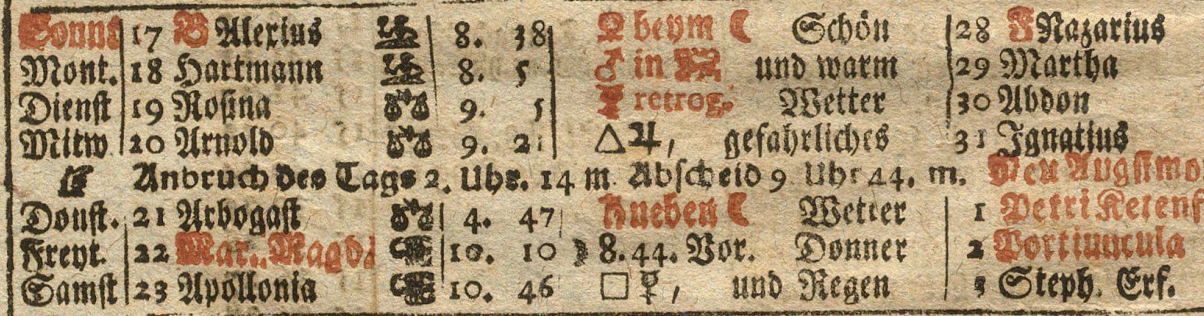 Sonnt 17 B Alexius 8. 38 ♀ beym ☾ Schön 28 F Nazarius
Mont. 18 Hartmann 8. 5 ♂ in und warm 29 Martha
Dienst 19 Rosina 9. 5 ☿ retrog. Wetter 30 Abdon
Mitw 20 Arnold 9. 21 △♃, gefahrliches 31 Ignatius
Anbruch des Tags 2. Uhr. 14 m. Abscheid 9 Uhr 44. m. Neu Augstmo
Donst. 21 Arbogast 4. 47 ☾ Wetter 1 Petri Ketenf
Freyt. 22 Mar. Magd. 10. 10 ☽ 8. 44. Vor. Donner 2 Portiuncula
Samst 23 Apollonia 10. 46 □☿, und Regen 3 Steph. Erf.